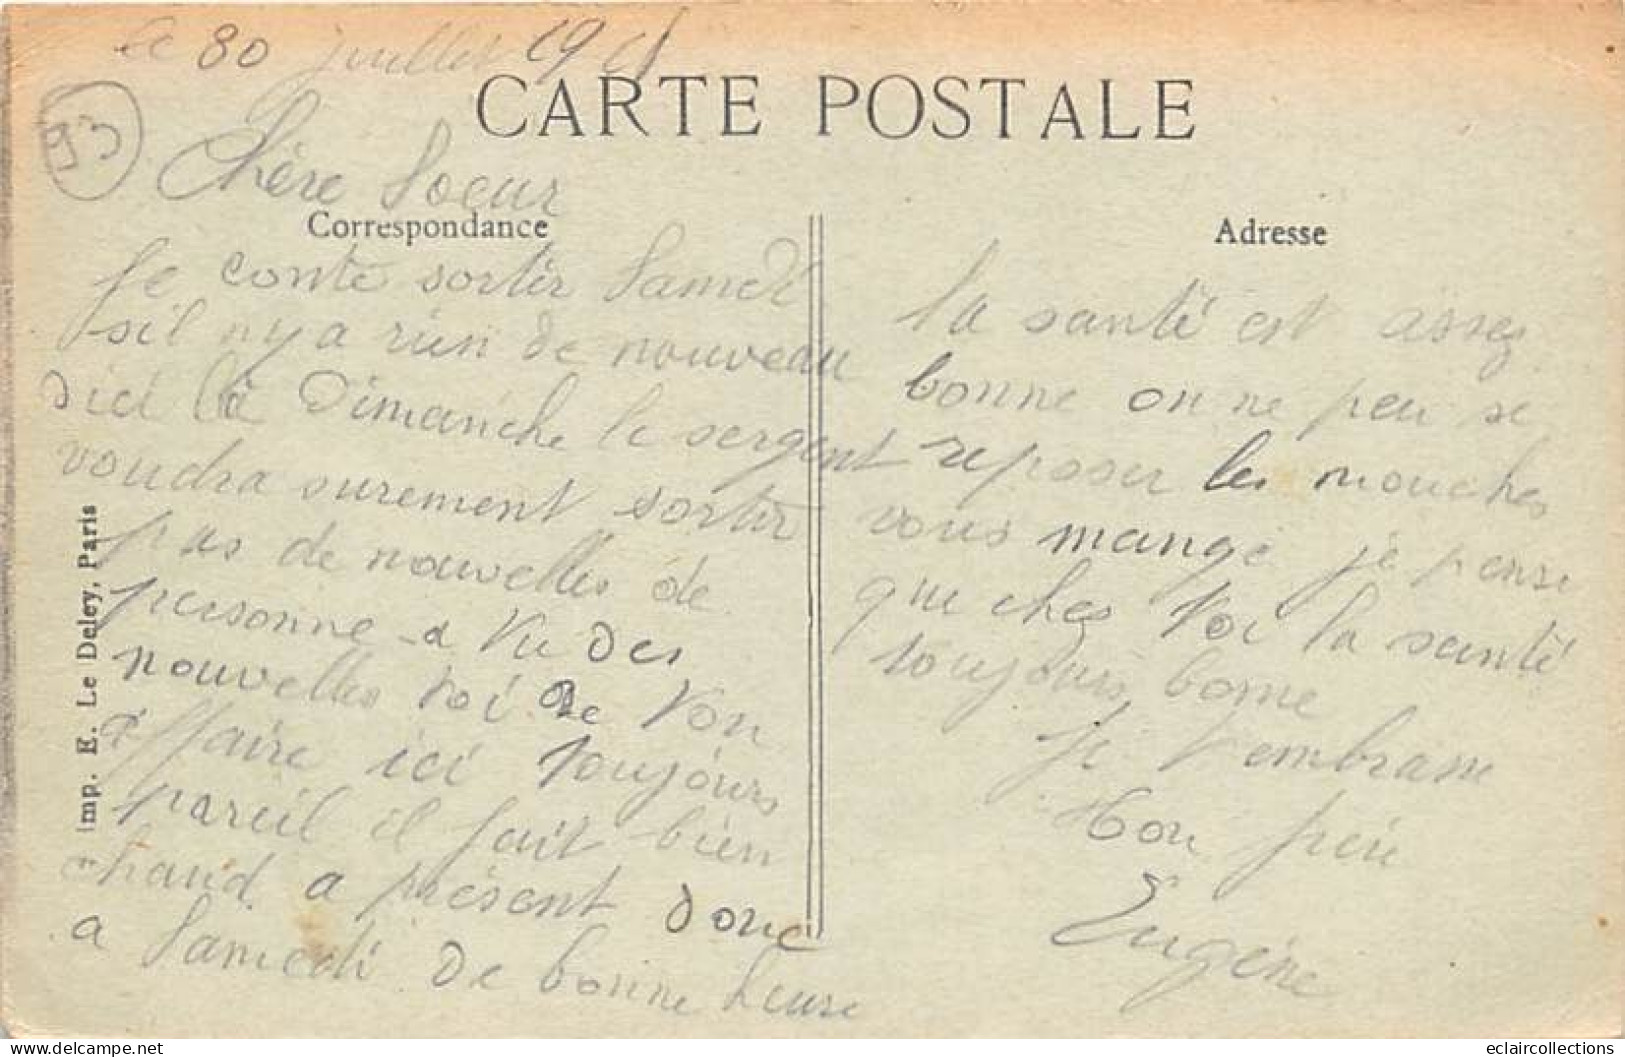 le 30 juillet 1918
CARTE POSTALE
93
Chère Soeur
Correspondance
Je conte sortir Samedi
sil ny a rien de nouveau
dici là Dimanche le sergent
voudra surement sortir
pas de nouvelles de
personne a tu des
nouvelles toi de ton
affaire ici toujours
pareil il fait bien
chaud a présent donc
a Samedi de bonne heure
Adresse
la santé est asses
bonne on ne peu se
reposer les mouches
vous mange je pense
que ches toi la santé
toujours bonne
Je t'embrasse
Ton frère
Eugéne
Imp. E. Le Deley, Paris
eclaircollections